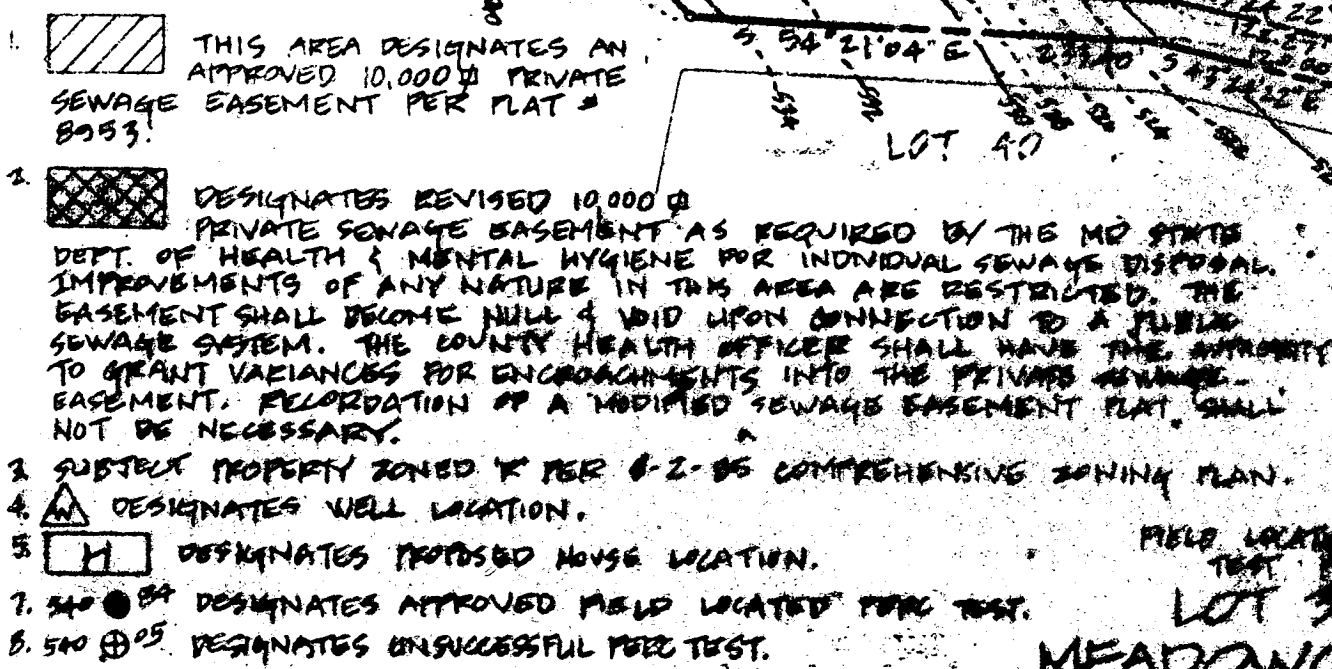 1. THIS AREA DESIGNATES AN
APPROVED 10,000 ⌷ PRIVATE
SEWAGE EASEMENT PER PLAT #
8953.
2. DESIGNATES REVISED 10,000 ⌷
PRIVATE SEWAGE EASEMENT AS REQUIRED BY THE MD STATE
DEPT. OF HEALTH & MENTAL HYGIENE FOR INDIVIDUAL SEWAGE DISPOSAL.
IMPROVEMENTS OF ANY NATURE IN THIS AREA ARE RESTRICTED. THE
EASEMENT SHALL BECOME NULL & VOID UPON CONNECTION TO A PUBLIC
SEWAGE SYSTEM. THE COUNTY HEALTH OFFICER SHALL HAVE THE AUTHORITY
TO GRANT VARIANCES FOR ENCROACHMENTS INTO THE PRIVATE SEWAGE
EASEMENT. RECORDATION OF A MODIFIED SEWAGE EASEMENT PLAT SHALL
NOT BE NECESSARY.
3. SUBJECT PROPERTY ZONED "R" PER COMPREHENSIVE ZONING PLAN.
4. W DESIGNATES WELL LOCATION.
5. H DESIGNATES PROPOSED HOUSE LOCATION.
7. 540 84 DESIGNATES APPROVED FIELD LOCATED PERC TEST.
8. 540 05 DESIGNATES UNSUCCESSFUL PERC TEST.
S 54°21'04" E
S 43°24'22" E
LOT 40
FIELD LOCAT
TEST
LOT 3
MEADOW